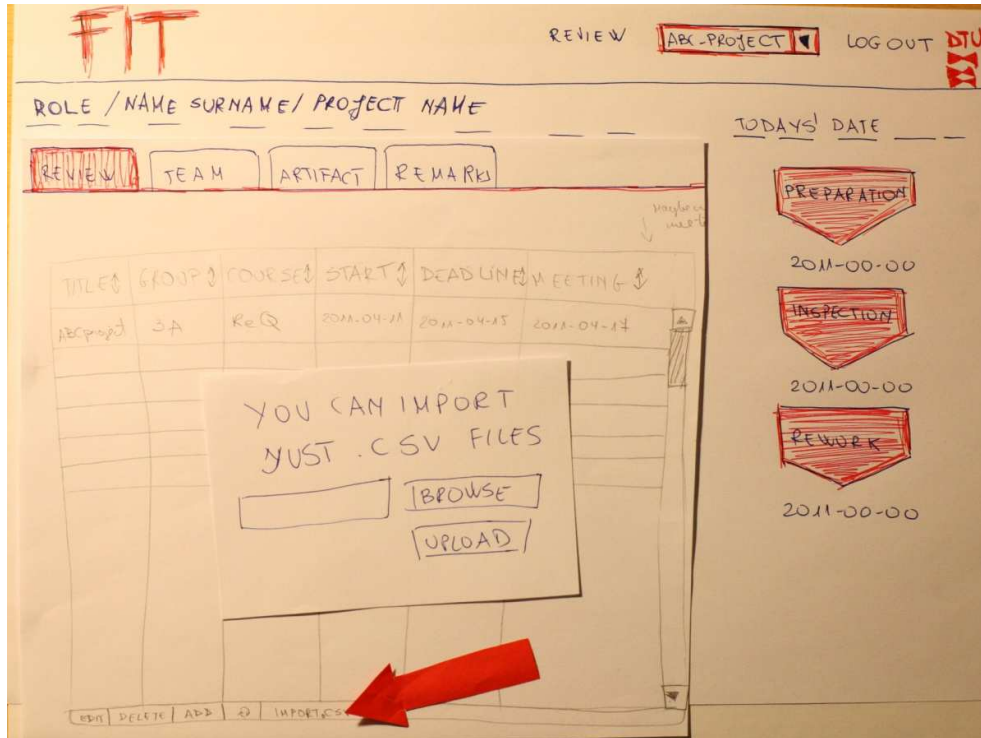 FIT
REVIEW ABC-PROJECT LOGOUT DTU
ROLE / NAME SURNAME / PROJECT NAME
TODAYS' DATE
REVIEW TEAM ARTIFACT REMARKS
Maybe
TITLE GROUP COURSE START DEADLINE MEETING
ABCproject 3A ReQ 2011-04-11 2011-04-15 2011-04-17
YOU CAN IMPORT
JUST .CSV FILES
BROWSE
UPLOAD
EDIT DELETE ADD IMPORT.CS
PREPARATION
2011-00-00
INSPECTION
2011-00-00
REWORK
2011-00-00